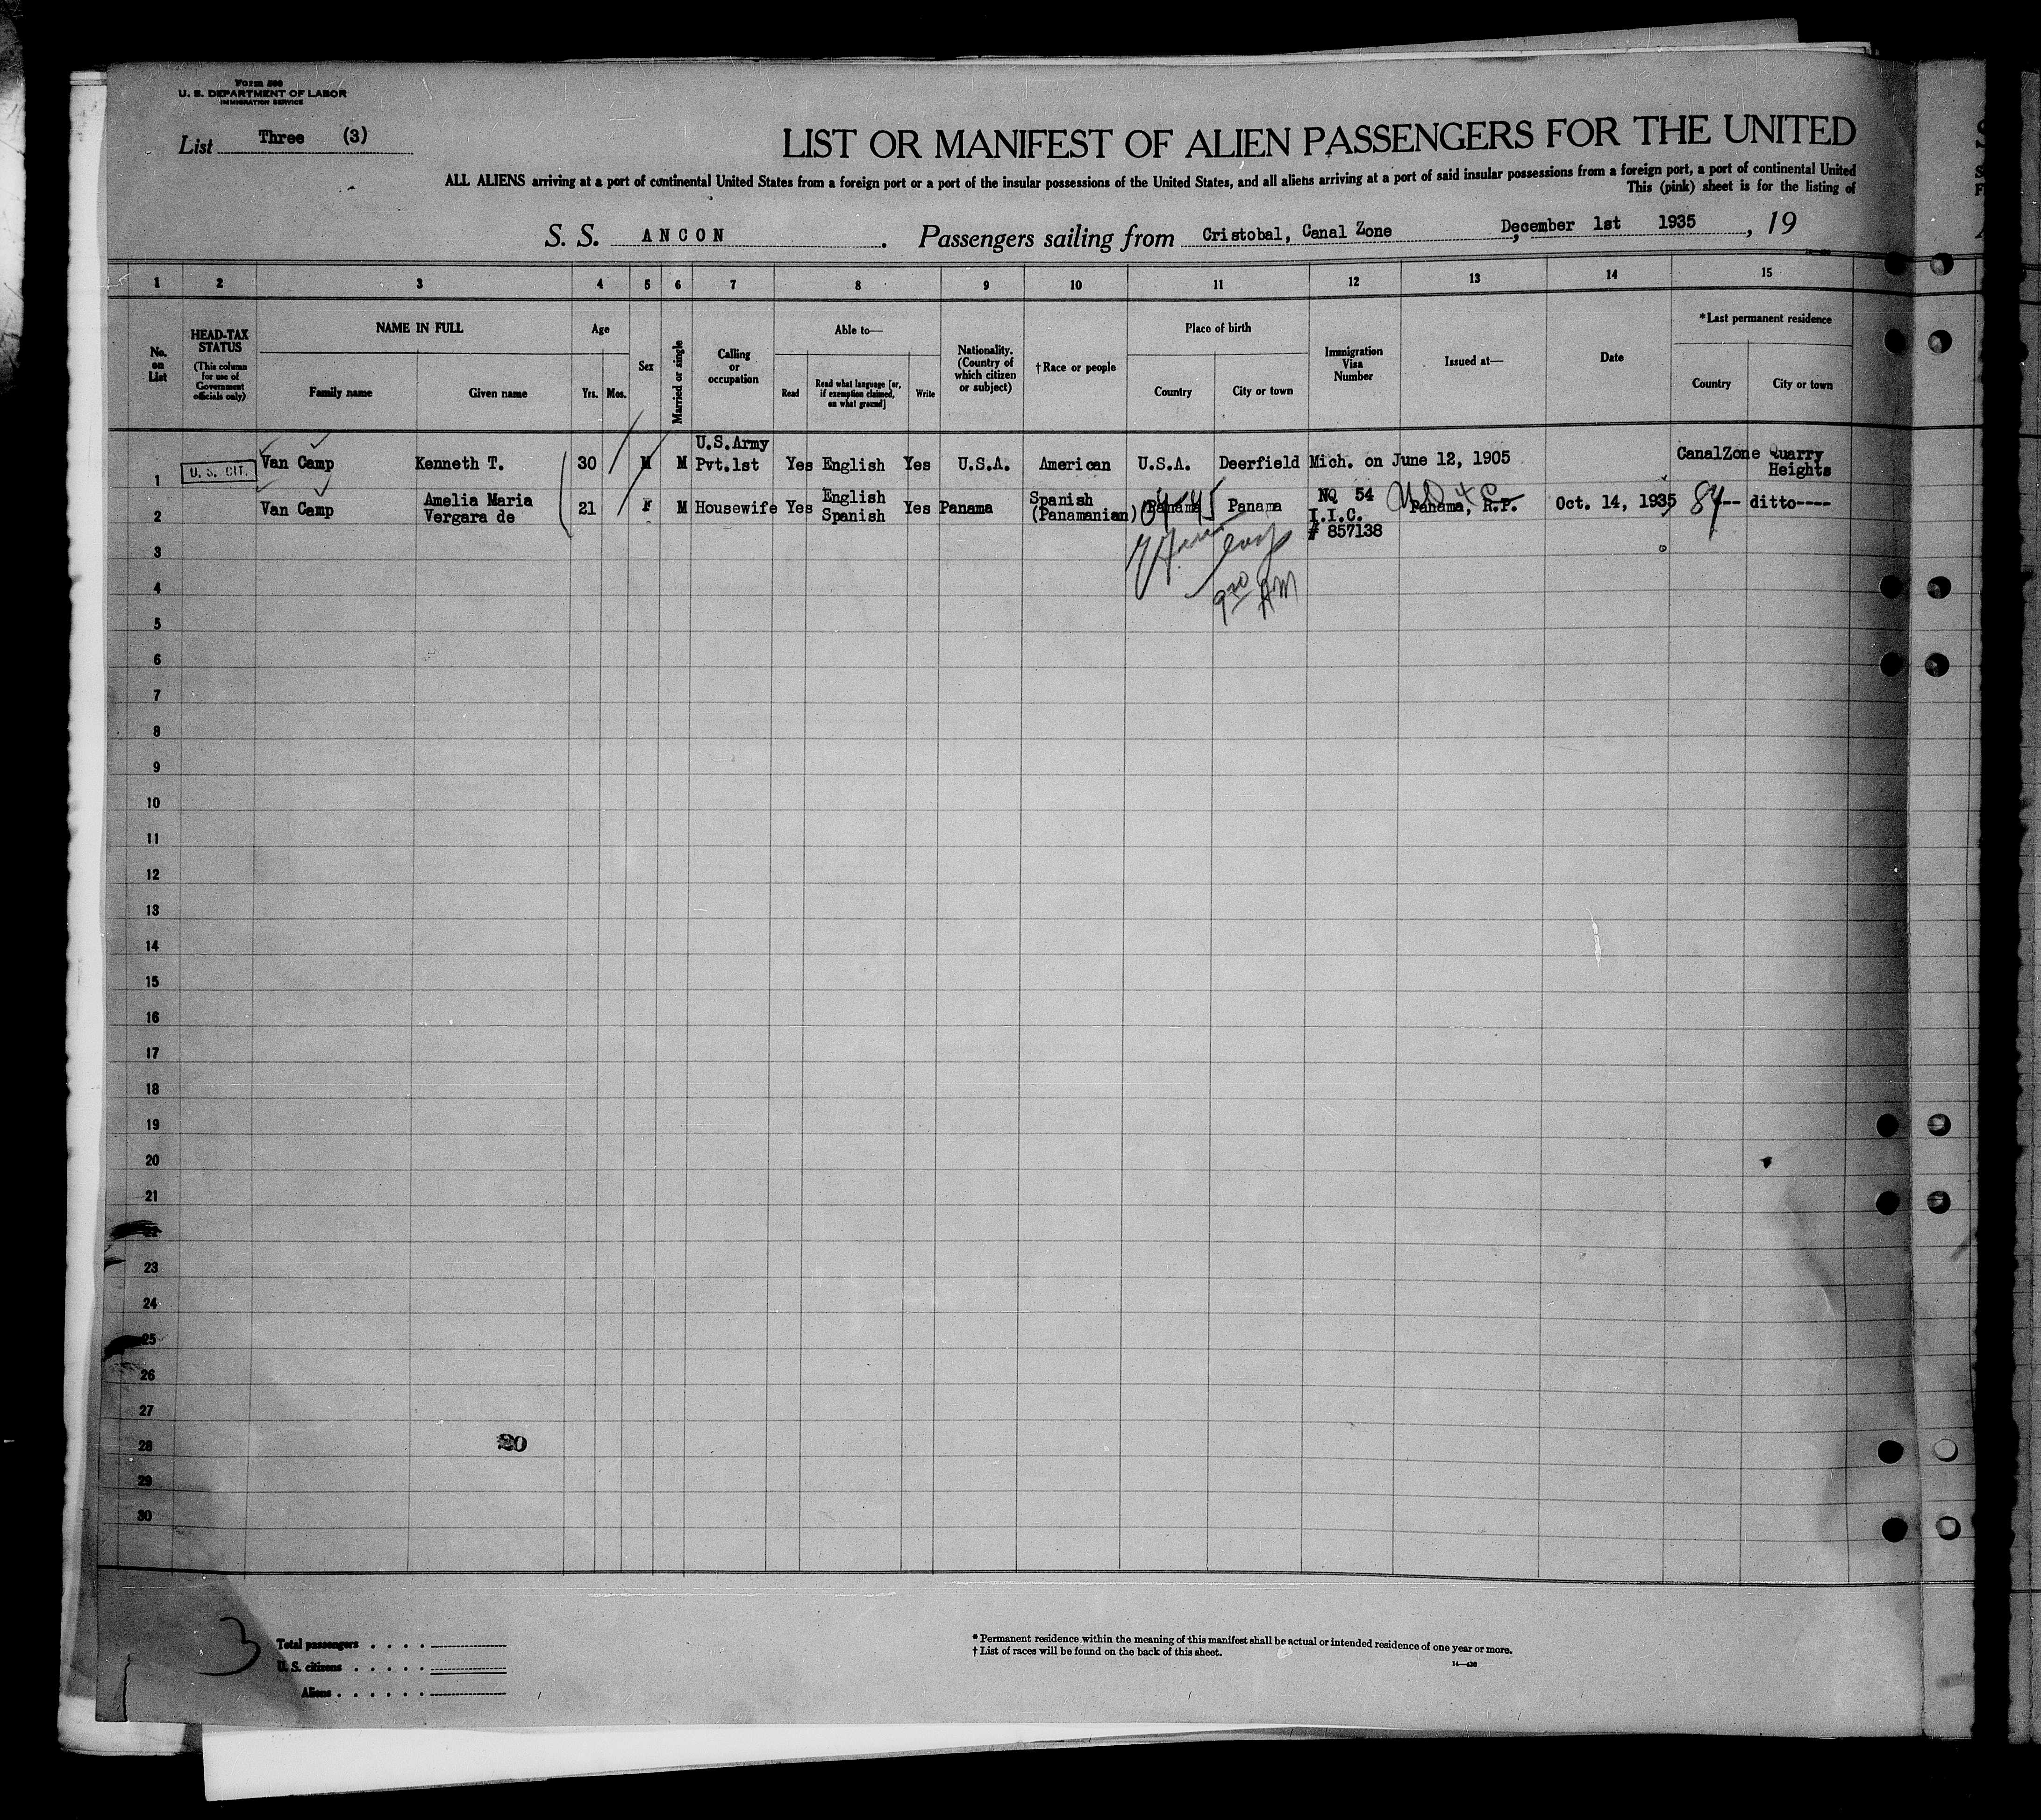 Form 500
U. S. DEPARTMENT OF LABOR
IMMIGRATION SERVICE
List Three (3)
LIST OR MANIFEST OF ALIEN PASSENGERS FOR THE UNITED
ALL ALIENS arriving at a port of continental United States from a foreign port or a port of the insular possessions of the United States, and all aliens arriving at a port of said insular possessions from a foreign port, a port of continental United
This (pink) sheet is for the listing of
S. S. ANCON. Passengers sailing from Cristobal, Canal Zone, December 1st 1935, 19
1 2 3 4 5 6 7 8 9 10 11 12 13 14 15
No. on List
HEAD-TAX STATUS
(This column for use of Government officials only)
NAME IN FULL
Family name Given name
Age
Yrs. Mos.
Sex
Married or single
Calling or occupation
Able to—
Read Read what language [or, if exemption claimed, on what ground] Write
Nationality. (Country of which citizen or subject)
†Race or people
Place of birth
Country City or town
Immigration Visa Number
Issued at—
Date
*Last permanent residence
Country City or town
1 U. S. CIT. Van Camp Kenneth T. 30 M M U.S.Army Pvt.1st Yes English Yes U.S.A. American U.S.A. Deerfield Mich. on June 12, 1905 CanalZone Quarry Heights
2 Van Camp Amelia Maria Vergara de 21 F M Housewife Yes English Spanish Yes Panama Spanish (Panamanian) Panama Panama NQ 54 I.I.C. # 857138 Panama, R.P. Oct. 14, 1935 84 -- ditto----
9 30 AM
3
4
5
6
7
8
9
10
11
12
13
14
15
16
17
18
19
20
21
22
23
24
25
26
27
28
20
29
30
3
Total passengers . . . .
U. S. citizens . . . . .
Aliens . . . . . .
* Permanent residence within the meaning of this manifest shall be actual or intended residence of one year or more.
† List of races will be found on the back of this sheet.